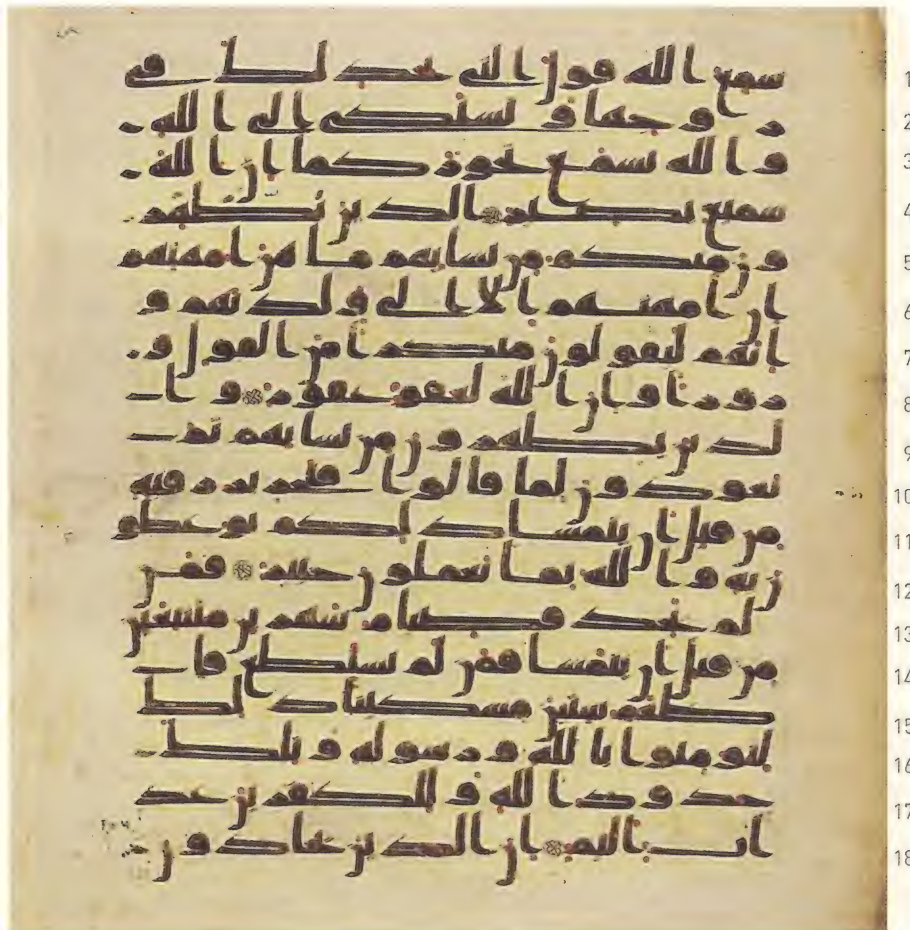 سمع الله قول التي تجدلك في 1
زوجها وتشتكي الى الله 2
والله يسمع تحوركما ان الله 3
سميع بصير الذين يظهرو 4
ن منكم من نسايهم ما هن امهتهم 5
ان امهتهم الا الي ولدنهم و 6
انهم ليقولون منكرا من القول و 7
زورا وان الله لعفو غفور وا 8
لذين يظهرون من نسايهم ثم 9
يعودون لما قالوا فتحرير رقبة 10
من قبل ان يتماسا ذلكم توعظو 11
ن به والله بما تعملون خبير فمن 12
لم يجد فصيام شهرين متتبعين 13
من قبل ان يتماسا فمن لم يستطع فا 14
طعام ستين مسكينا ذلك 15
لتومنوا بالله ورسوله وتلك 16
حدود الله وللكفرين عذ 17
اب اليم ان الذين يحادون 18